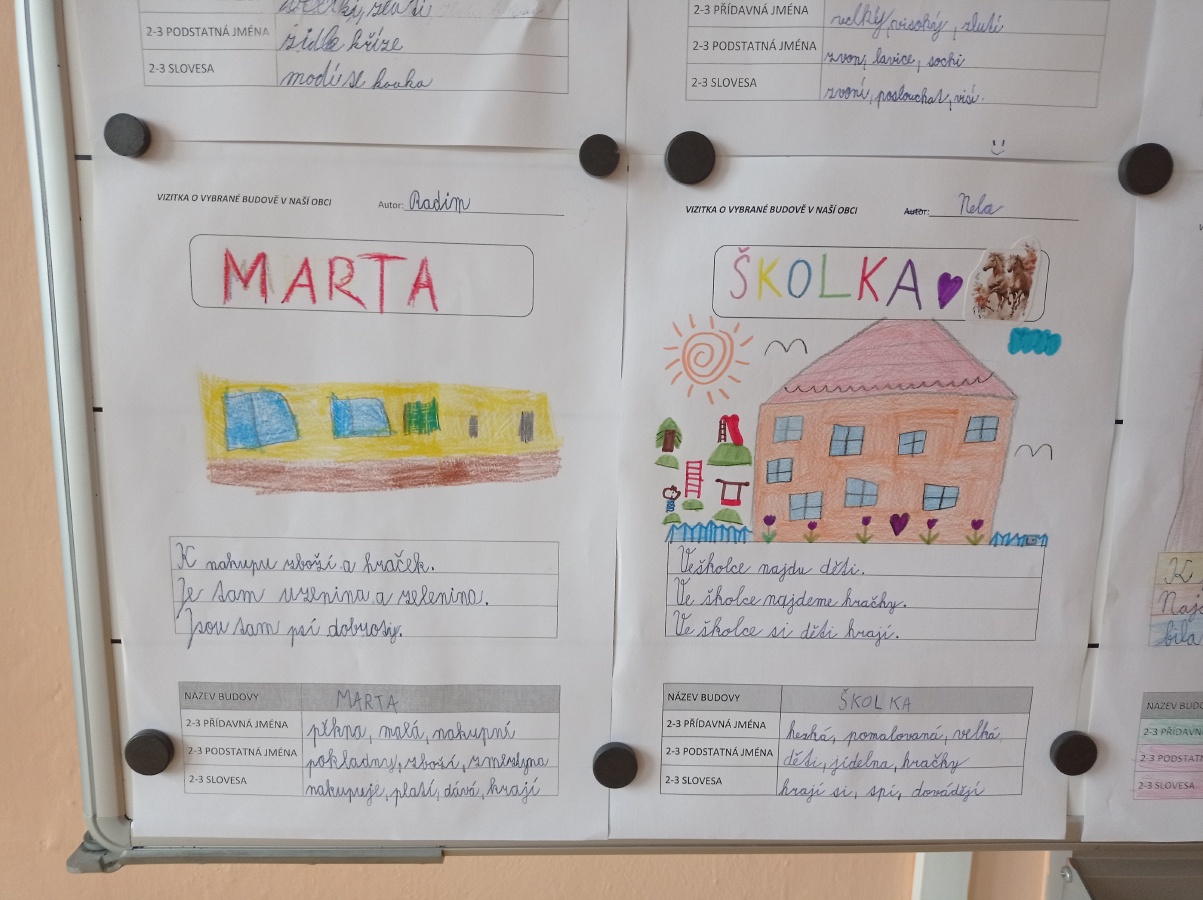 velký, zlatí
2-3 PODSTATNÁ JMÉNA židle kříže
2-3 SLOVESA modí se kouka
2-3 PŘÍDAVNÁ JMÉNA velký, visoký, zlutí
2-3 PODSTATNÁ JMÉNA zvon, lavice, sochi
2-3 SLOVESA zvoní, poslouchat, visí.
VIZITKA O VYBRANÉ BUDOVĚ V NAŠÍ OBCI Autor: Radim
MARTA
K nakupu zboží a hraček.
Je tam uzenina a zelenina.
Jsou tam psí dobroty.
NÁZEV BUDOVY MARTA
2-3 PŘÍDAVNÁ JMÉNA pěkna, malá, nakupní
2-3 PODSTATNÁ JMÉNA pokladny, zboží, zmrzlyna
2-3 SLOVESA nakupuje, platí, dává, hrají
VIZITKA O VYBRANÉ BUDOVĚ V NAŠÍ OBCI Autor: Nela
ŠKOLKA
Ve školce najdu děti.
Ve školce najdeme hračky.
Ve školce si děti hrají.
NÁZEV BUDOVY ŠKOLKA
2-3 PŘÍDAVNÁ JMÉNA hezká, pomalovaná, velká
2-3 PODSTATNÁ JMÉNA děti, jídelna, hračky
2-3 SLOVESA hrají si, spí, dovádějí
K
bíla
NÁZEV BUDO
2-3 PŘÍDAVN
2-3 PODSTAT
2-3 SLOVESA